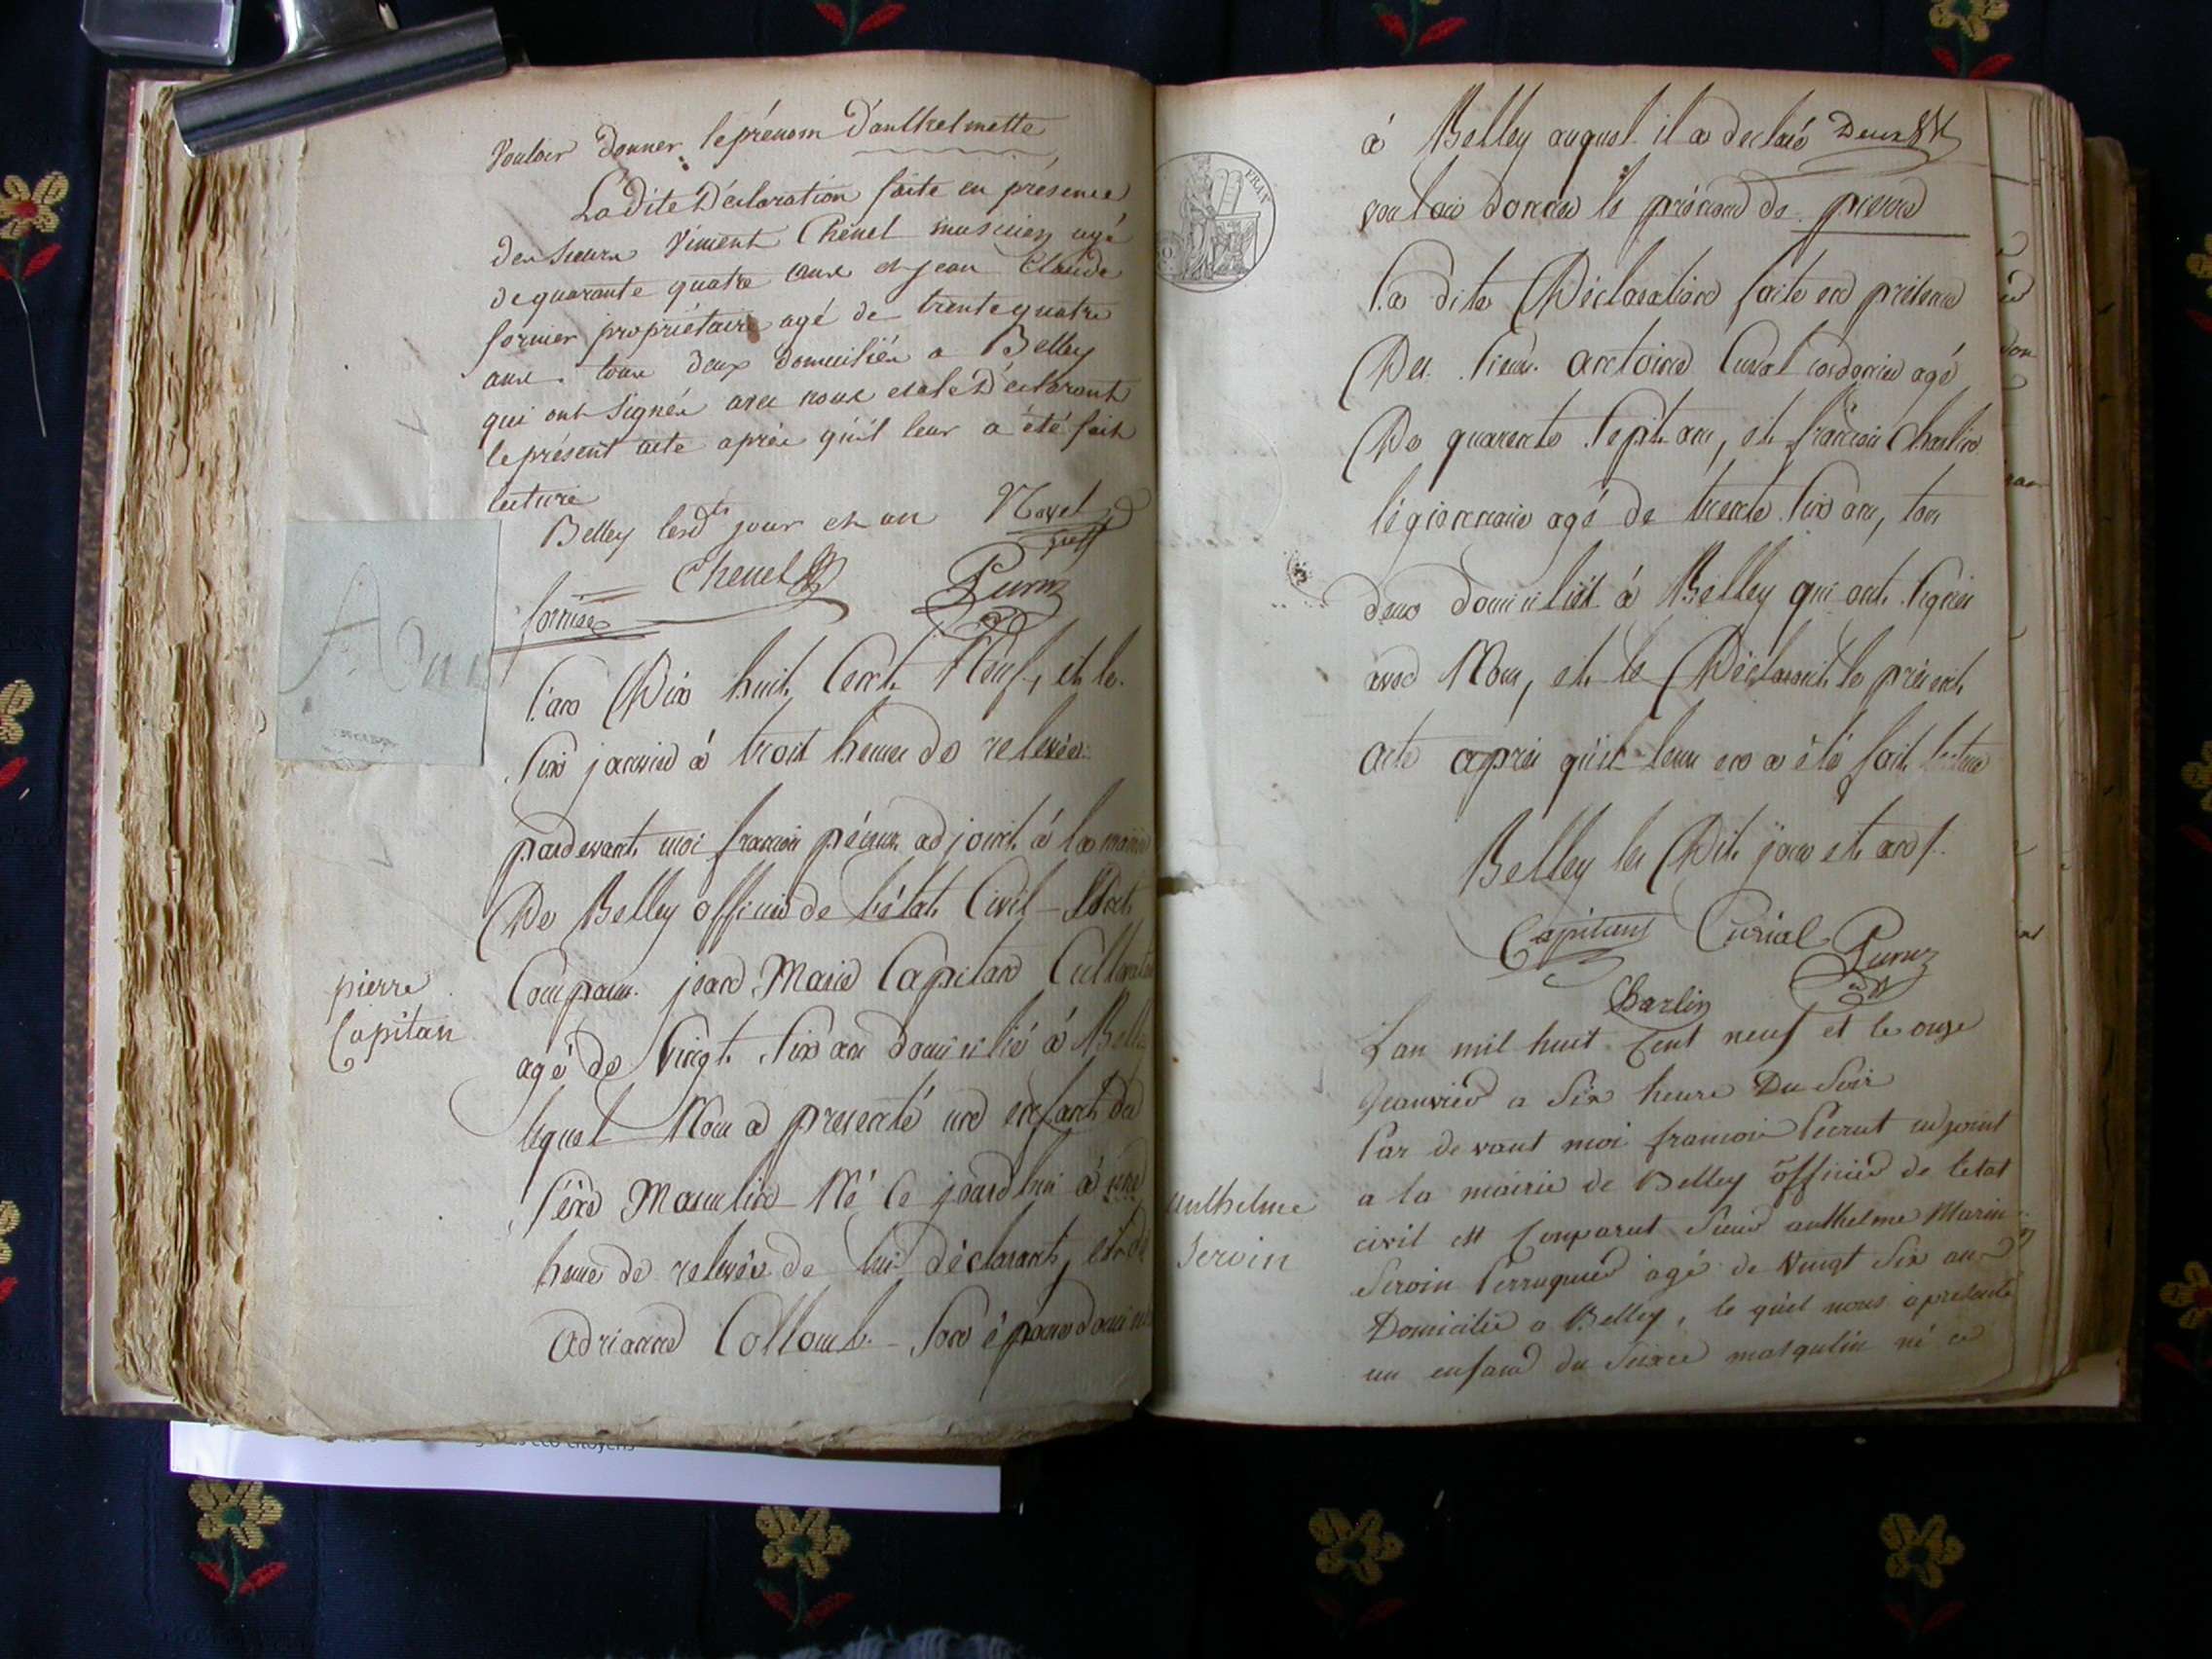 Vouloir donner le prénom D'anthelmette
La dite Déclaration faite en présence
des sieurs Vincent Chenel musicien agé
de quarante quatre ans et jean Claude
fornier propriétaire agé de trente quatre
ans tous deux domiciliés a Belley
qui ont signés avec nous et le Déclarant
le présent acte après qu'il leur a été fait
lecture
Belley lesdts jour et an
Chenel
fornier
L'an Dix huit Cent Neuf, et le
Six janvier à trois heures de relevée
pardevant moi françois adjoint à la mairie
De Belley officier de l'état Civil
Comparu jean Marie Capitan Cultivateur
agé de Vingt Six ans domicilié à Belley
lequel Nous a presenté un enfant du
Séxe Masculin Né Ce jourd'hui à une
heure de relevée de lui déclarant, et de
Adrianne Collomb Son épouse
pierre
Capitan
à Belley auquel il a declaré Deux
vouloir donner le prénom de pierre
La dite Déclaration faite en présence
Des Sieurs antoine Curial Cordonnier agé
De quarente Sept ans, et françois Charlin
légionnaire agé de trente Six ans, tous
deux domiciliét à Belley qui ont Signés
avec Nous, et le Déclarant le présent
acte après qu'il leur en a été fait lecture
Belley les Dits jour et an
Capitan Curial
Charlin
L'an mil huit Cent neuf et le onze
Janvier a Six heure Du Soir
Par devant moi francois adjoint
a la mairie de Belley officier de l'etat
civil est Comparut Sieur anthelme Marin
Seroin Perruquier agé de Vingt Six ans
Domicilié a Belley, le quel nous a presenté
un enfant du Sexce masqulin né ce
anthelme
Seroin
FRAN